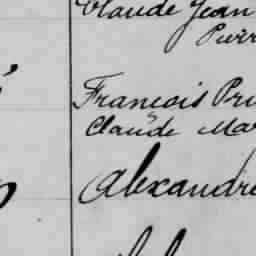 Claude Jean
Pierr
François Pri
Claude Mar
Alexandre